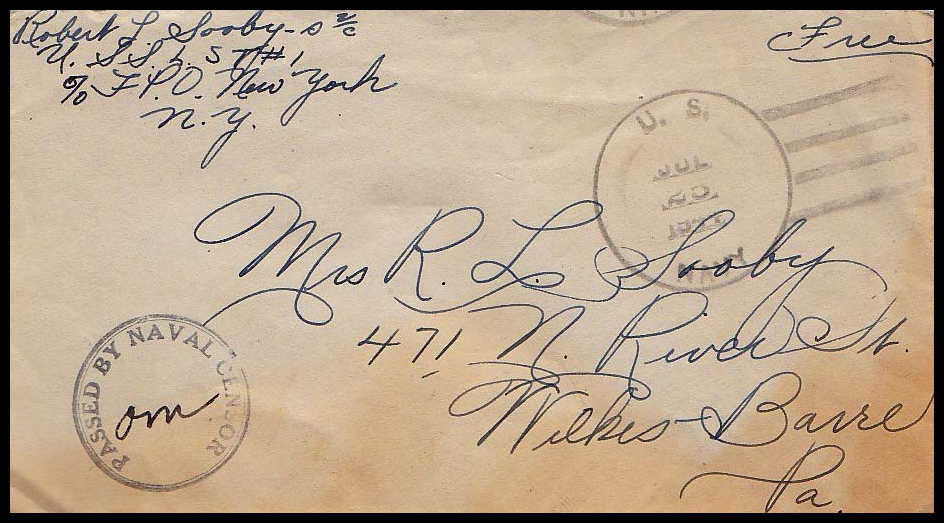 Robert L Sooby - S 2/c
U.S.S. L.S.T. #1
℅ F.P.O. New York
N.Y.
Free
U. S.
JUL
20
NAVY
Mrs R. L. Sooby
471 N. River St.
Wilkes-Barre
Pa.
PASSED BY NAVAL CENSOR
om